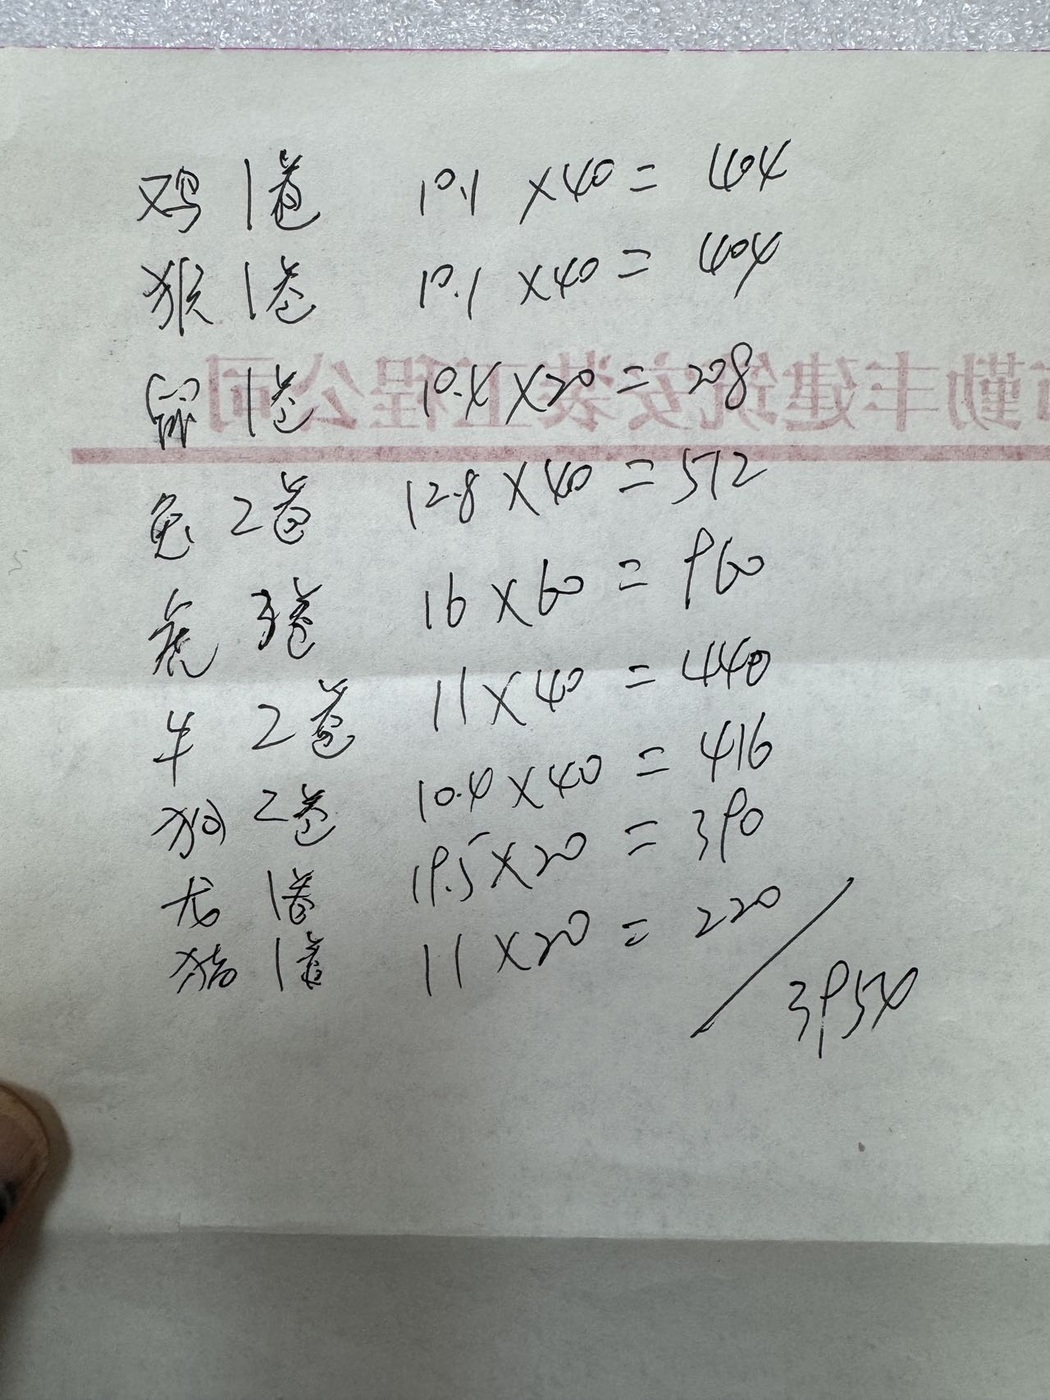 鸡 1卷 10.1 ×40= 404
猴 1卷 10.1 ×40= 404
勤丰建筑安装工程公司
鼠 1卷 10.4×20=208
兔 2卷 12.8×40=512
虎 3卷 16×60=960
牛 2卷 11×40=440
狗 2卷 10.4×40=416
龙 1卷 19.5×20=390
猪 1卷 11×20=220
3954